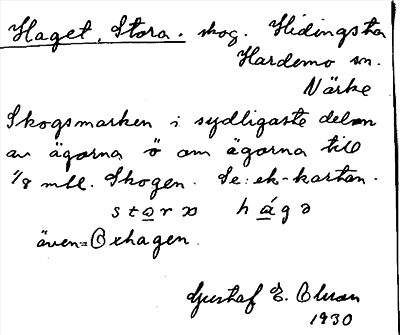 Haget, Stora. skog. Hidingsta
Hardemo sn.
Närke
Skogsmarken i sydligaste delen
av ägorna ö om ägorna till
1/8 mtl. Skogen. Se: ek-kartan.
stora hágə
även = Oxhagen.
Gustaf E. Olsson
1930